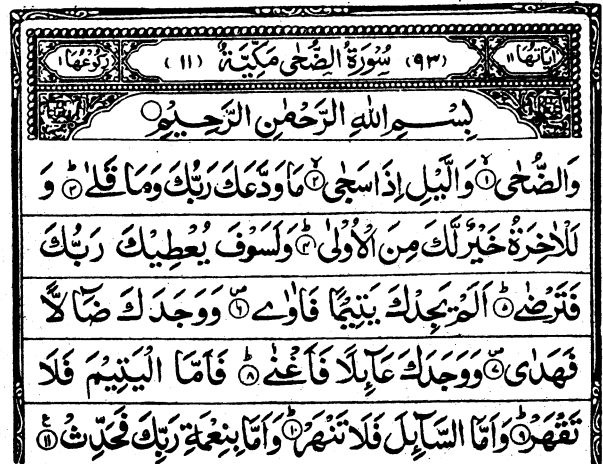 اٰيَاتُهَا ١١ (٩٣) سُوْرَةُ الضُّحٰى مَكِّيَّةٌ (١١) رُكُوْعُهَا ١
بِسْمِ اللّٰهِ الرَّحْمٰنِ الرَّحِيْمِ
وَالضُّحٰى ۙ‏﴿١﴾ وَالَّيْلِ اِذَا سَجٰى ۙ‏﴿٢﴾ مَا وَدَّعَكَ رَبُّكَ وَمَا قَلٰى ؕ‏﴿٣﴾ وَ
لَلْاٰخِرَةُ خَيْرٌ لَّكَ مِنَ الْاُوْلٰى ؕ‏﴿٤﴾ وَلَسَوْفَ يُعْطِيْكَ رَبُّكَ
فَتَرْضٰى ؕ‏﴿٥﴾ اَلَمْ يَجِدْكَ يَتِيْمًا فَاٰوٰى ۪‏﴿٦﴾ وَوَجَدَكَ ضَآلًّا
فَهَدٰى ۪‏﴿٧﴾ وَوَجَدَكَ عَآئِلًا فَاَغْنٰى ؕ‏﴿٨﴾ فَاَمَّا الْيَتِيْمَ فَلَا
تَقْهَرْ ؕ‏﴿٩﴾ وَاَمَّا السَّآئِلَ فَلَا تَنْهَرْ ؕ‏﴿١٠﴾ وَاَمَّا بِنِعْمَةِ رَبِّكَ فَحَدِّثْ ‏﴿١١﴾ ع